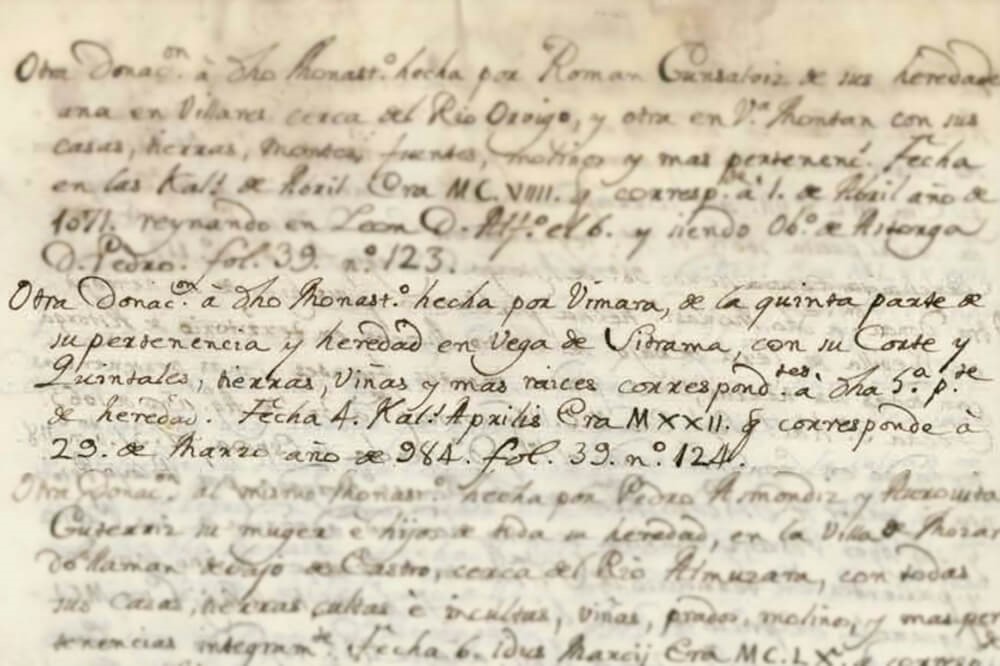 Otra Donac.on à dho Monast.o hecha por Roman Gunsaloiz de sus heredade
una en Villares cerca del Rio Orvigo, y otra en V.a Montan con sus
casas, tierras, montes, fuentes, molinos y mas pertenenc.s Fecha
en las Kal.s de Abril Era MC.VIIII. q corresp.de à 1. de Abril año de
1071. reynando en Leon D. Alf.o el 6. y siendo Ob.o de Astorga
D. Pedro. fol. 39. n.o 123.
Otra Donac.on à dho Monast.o hecha por Vimara, de la quinta parte de
su pertenencia y heredad en Vega de Vitrama, con su Corte y
Quintales, tierras, Viñas y mas raices correspond.tes à dha 5.a p.te
de heredad. Fecha 4. Kal.s Aprilis Era MXXII. q corresponde à
29. de Marzo año de 984. fol. 39. n.o 124.
Otra Donac.on al mismo Monast.o hecha por Pedro Asmondiz y
Guterriz su muger è hijos de toda su heredad, en la Villa de
do llaman devajo de Castro, cerca del Rio Almuzara, con todas
sus casas, tierras cultas è incultas, viñas, prados, molinos, y mas per
tenencias integram.te Fecha 6. idus Marcij Era MC.